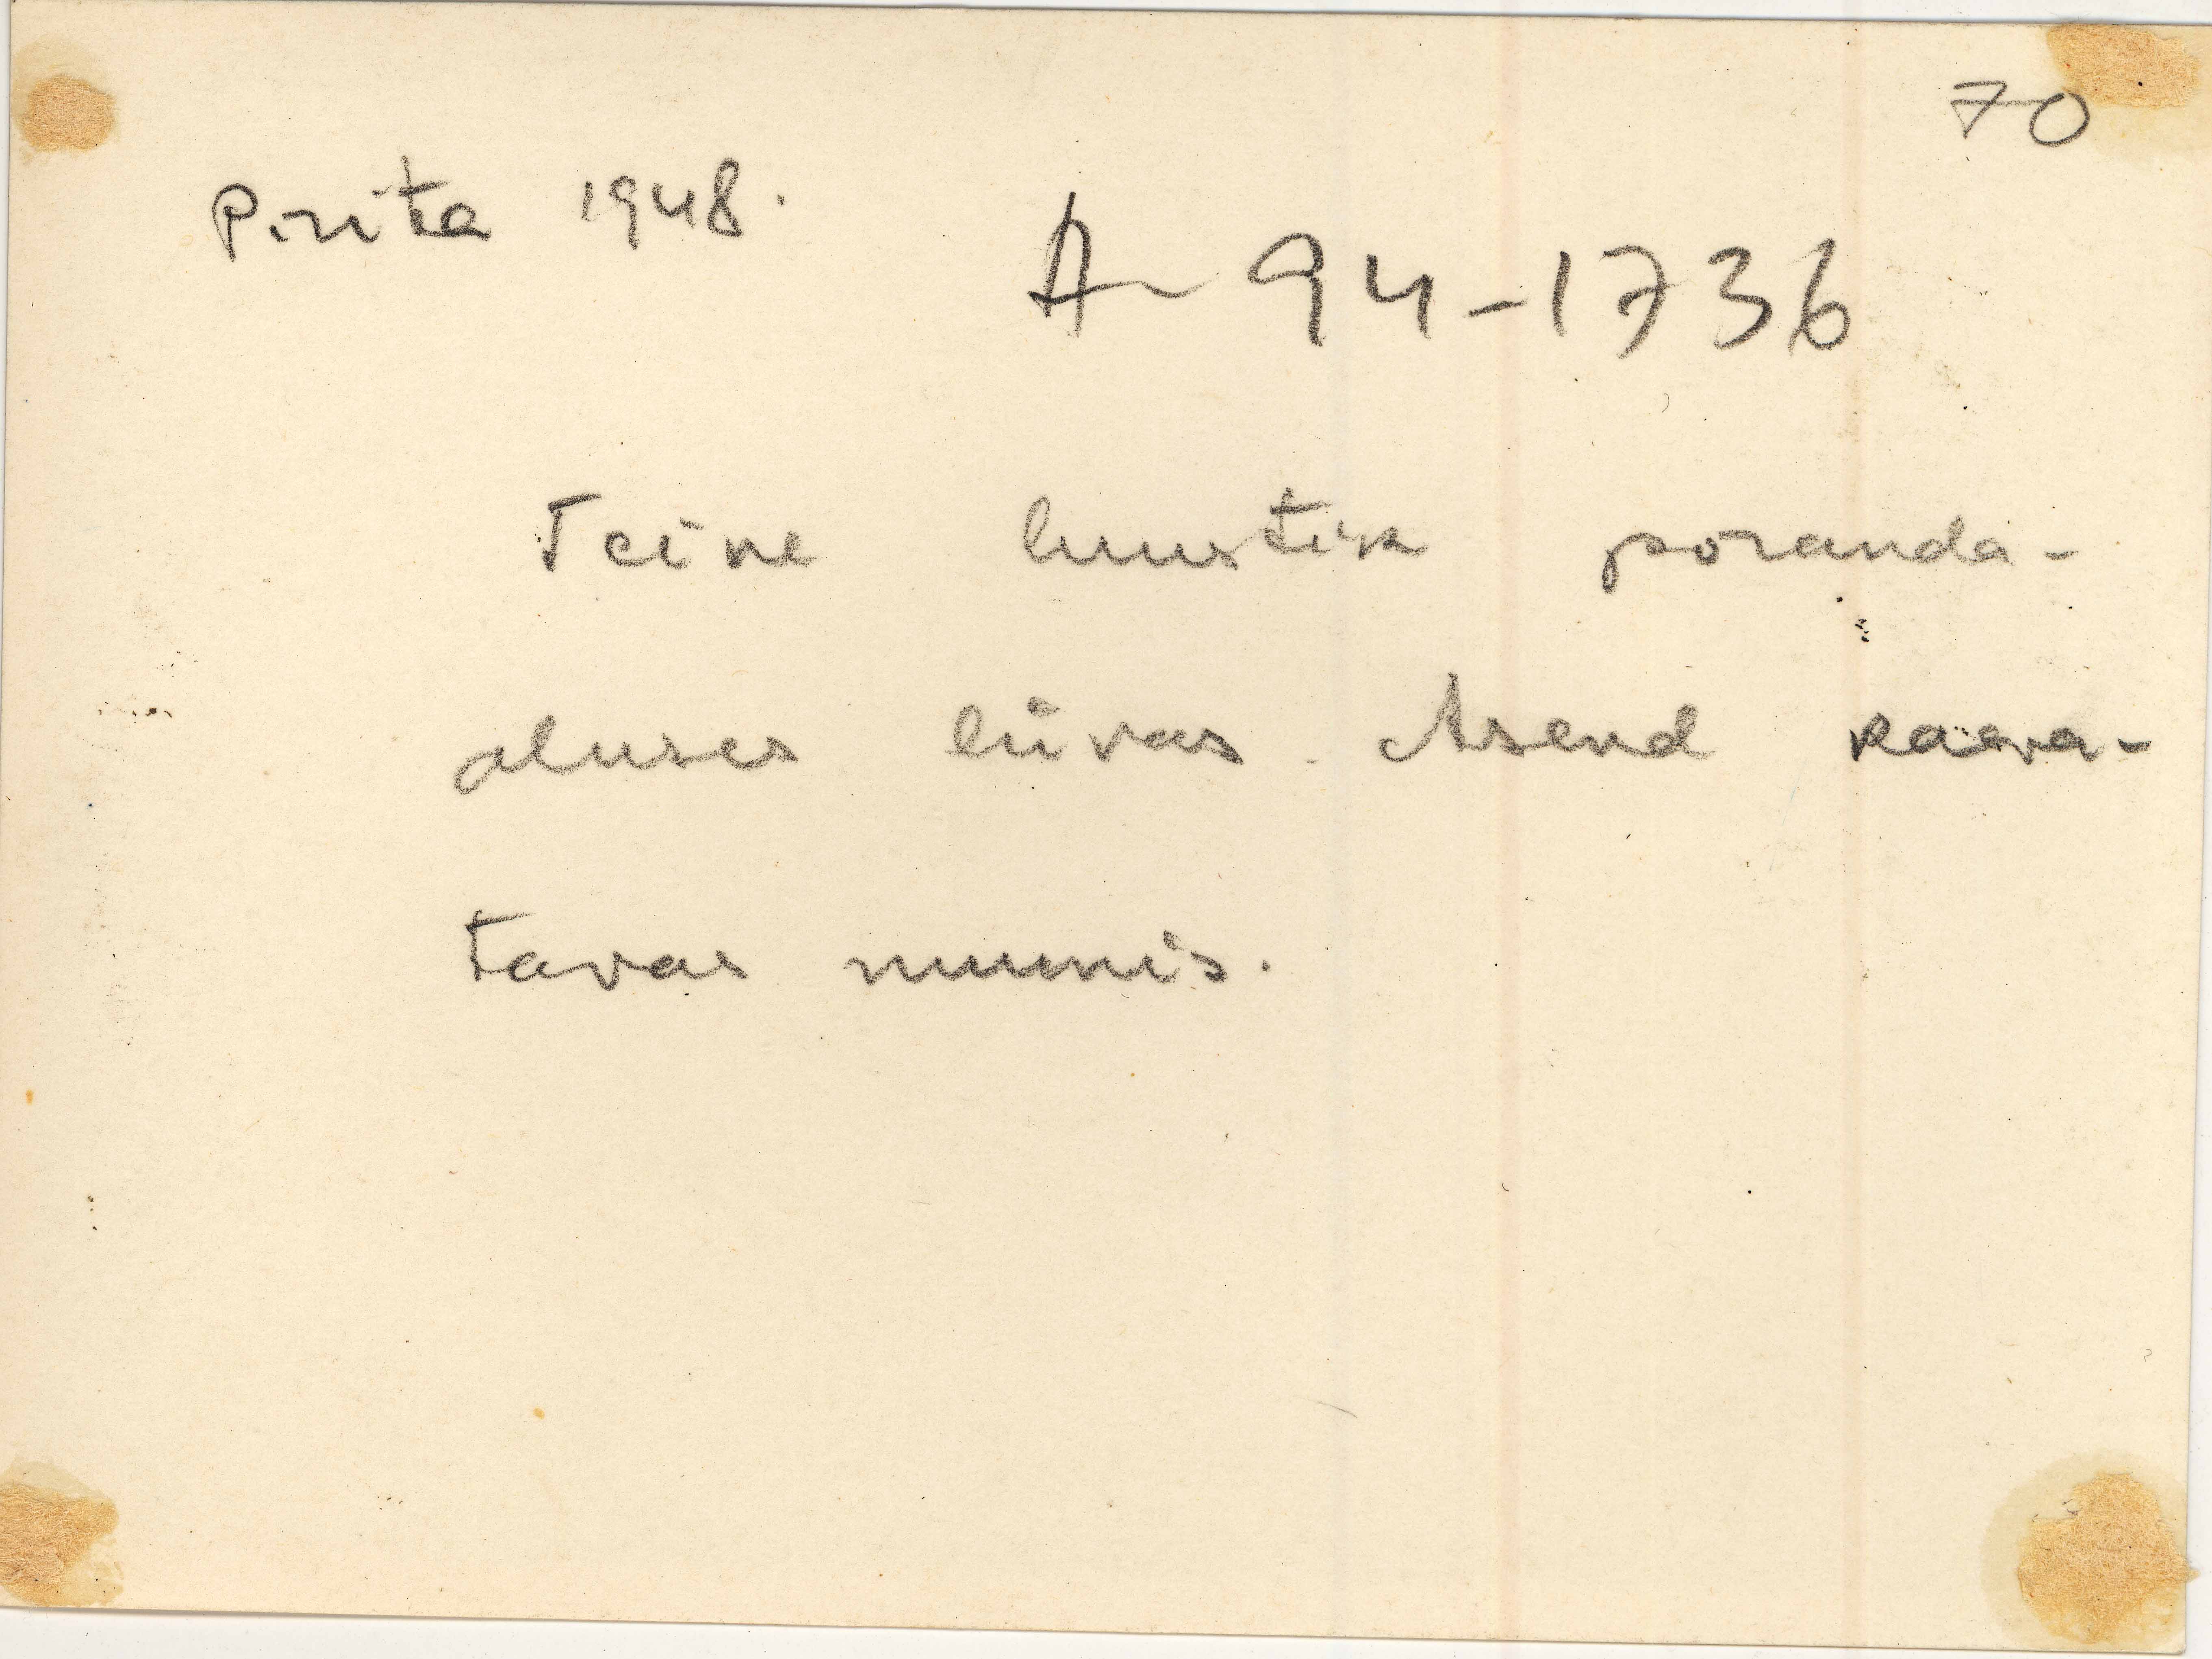 70
Pirita 1948.
A-94-1736
Teine luustik põranda-
aluses liivas. Asend kaeva-
tavas ruumis.